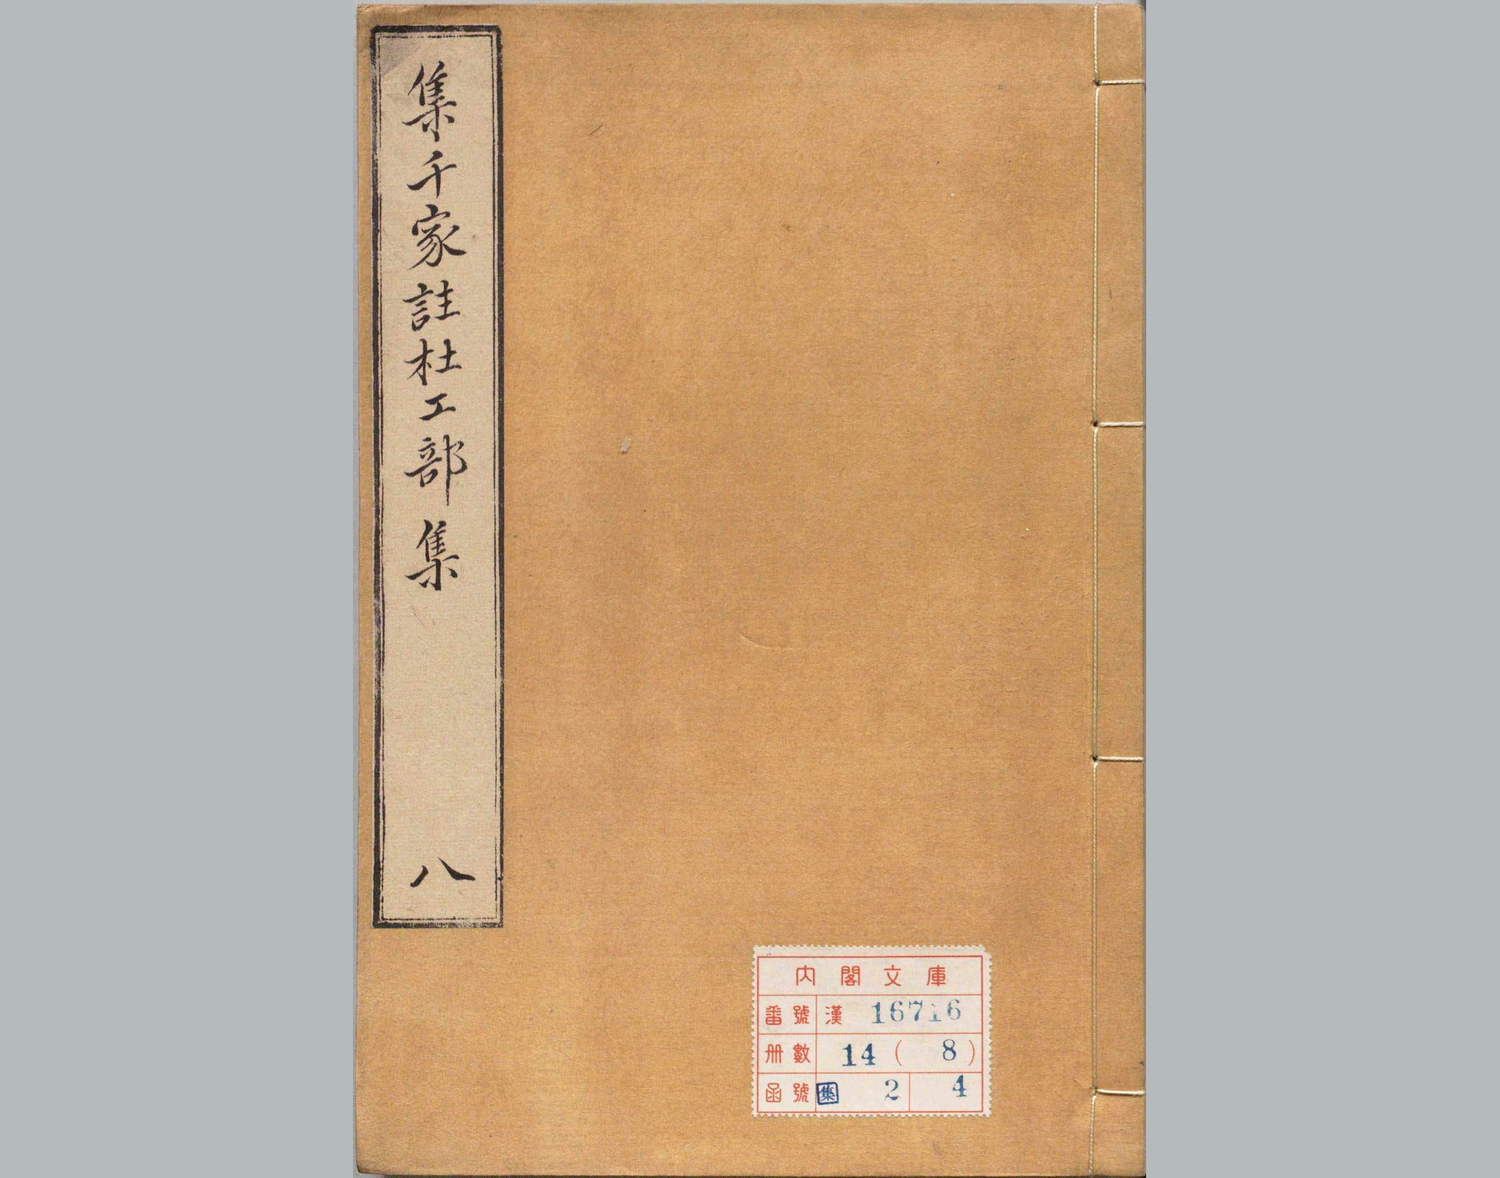 集千家註杜工部集
八
内閣文庫
番號 漢 16716
册數 14 ( 8 )
函號 集 2 4